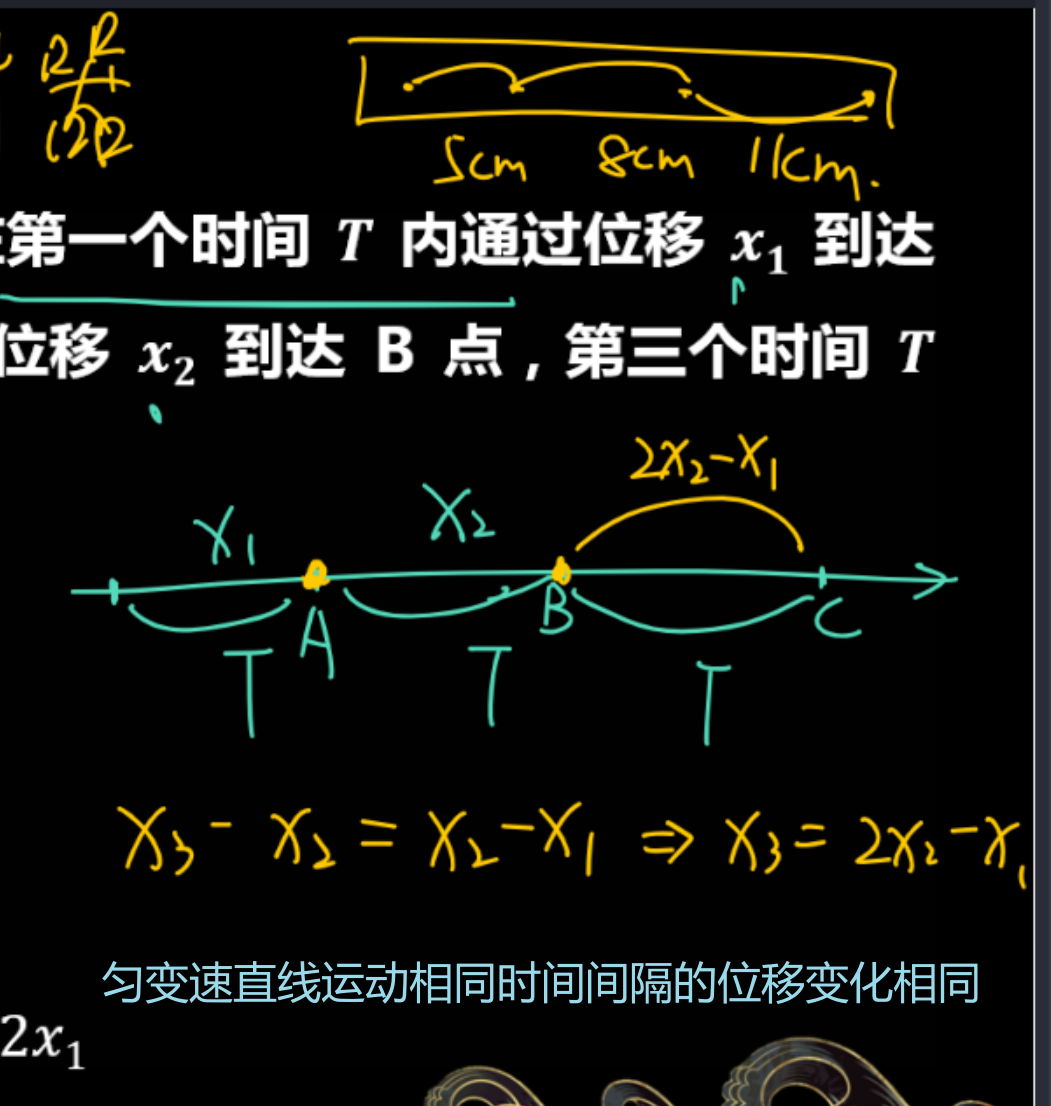 5cm 8cm 11cm.
第一个时间 T 内通过位移 x₁ 到达
位移 x₂ 到达 B 点，第三个时间 T
2x₂-x₁
x₁ x₂
A B C
T T T
x₃ - x₂ = x₂-x₁ ⇒ x₃= 2x₂-x₁
匀变速直线运动相同时间间隔的位移变化相同
2x₁